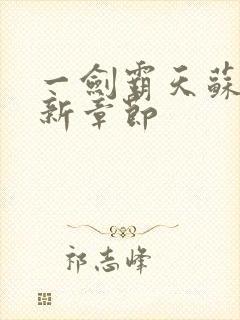 一劍霸天蘇
新章節
祁志峰